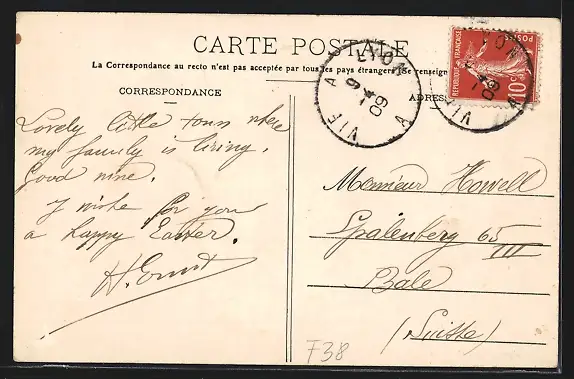 CARTE POSTALE
La Correspondance au recto n'est pas acceptée par tous les pays étrangers (Se renseign
CORRESPONDANCE
ADRES
Lovely little town where
my family is living.
Good wine.
I wishe for you
a happy Easter.
H. Ernst
Monsieur Howell
Spalenberg 65
III
Bale
(Suisse)
F38
LYON
09
VIE A
A
LYON
09
VIE
A
REPUBLIQUE FRANÇAISE
POSTES
10c